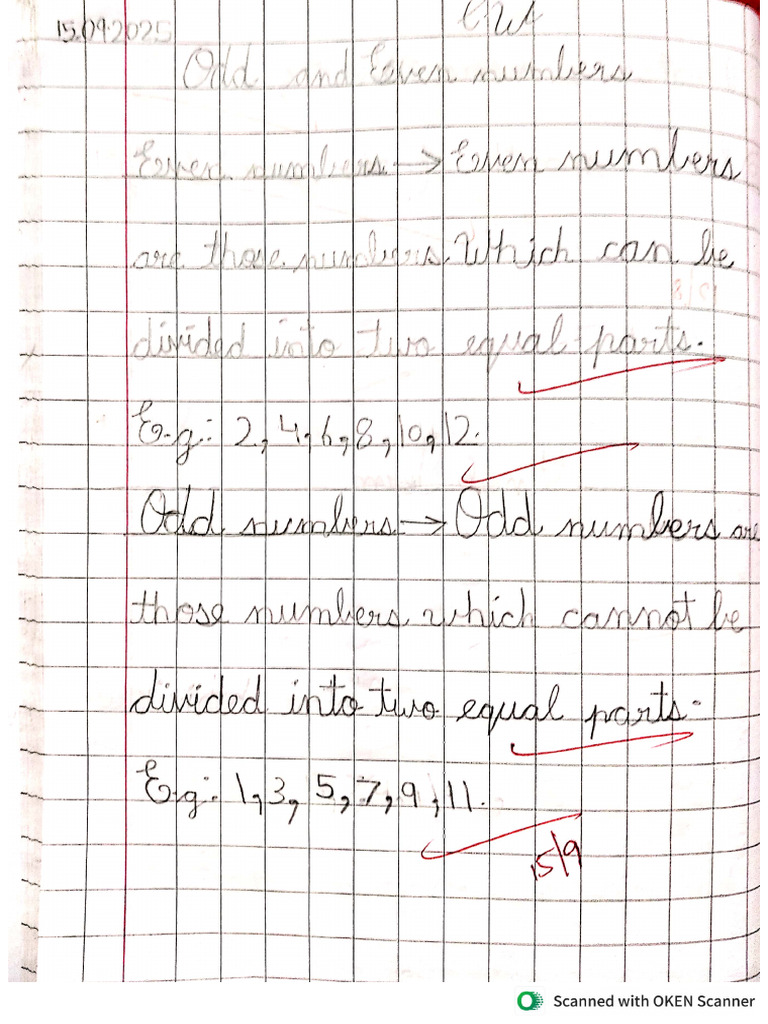 15.09.2025
C.W
Odd and Even numbers
Even numbers → Even numbers
are those numbers Which can be
divided into two equal parts.
E.g: 2, 4, 6, 8, 10, 12.
Odd numbers → Odd numbers are
those numbers which cannot be
divided into two equal parts.
E.g: 1, 3, 5, 7, 9, 11.
15/9
Scanned with OKEN Scanner